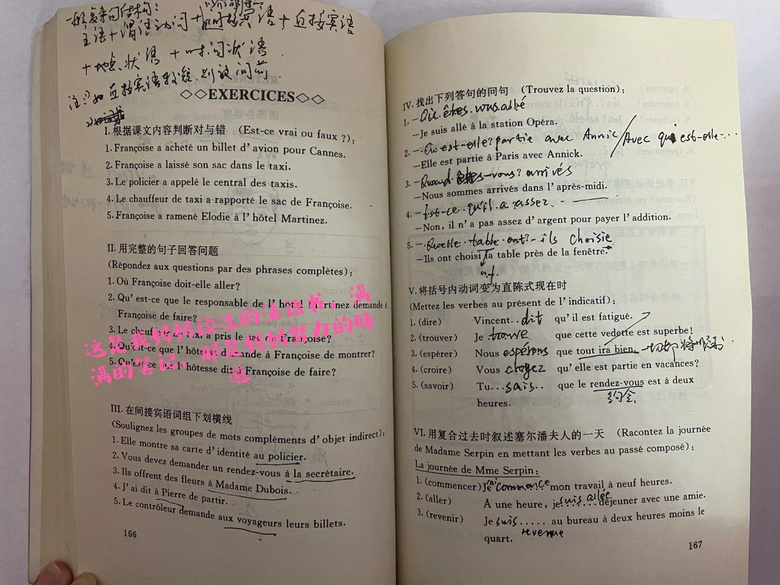 一般复杂句结构：
主语+谓语动词+间接宾语+直接宾语
+地点状语+时间状语.
注：如直接宾语较短.则放间前
◇◇EXERCICES◇◇
I.根据课文内容判断对与错 (Est-ce vrai ou faux ?)：
1. Françoise a acheté un billet d'avion pour Cannes.
2. Françoise a laissé son sac dans le taxi.
3. Le policier a appelé le central des taxis.
4. Le chauffeur de taxi a rapporté le sac de Françoise.
5. Françoise a ramené Elodie à l'hôtel Martinez.
II.用完整的句子回答问题
(Répondez aux questions par des phrases complètes)：
1. Où Françoise doit-elle aller?
2. Qu'est-ce que le responsable de l'hôtel Martinez demande à
Françoise de faire?
3. Le chauffeur de taxi a pris le sac de Françoise?
4. Qu'est-ce que l'hôtesse demande à Françoise de montrer?
5. Qu'est-ce que l'hôtesse dit à Françoise de faire?
III.在间接宾语词组下划横线
(Soulignez les groupes de mots compléments d'objet indirect)：
1. Elle montre sa carte d'identité au policier.
2. Vous devez demander un rendez-vous à la secrétaire.
3. Ils offrent des fleurs à Madame Dubois.
4. J'ai dit à Pierre de partir.
5. Le contrôleur demande aux voyageurs leurs billets.
166
IV.找出下列答句的问句 (Trouvez la question)：
1. —Où êtes-vous allé
—Je suis allé à la station Opéra.
2. —Où est-elle partie avec Annic/Avec qui est-elle...
—Elle est partie à Paris avec Annick.
3. —Quand êtes-vous? arrivés
—Nous sommes arrivés dans l'après-midi.
4. —Est-ce qu'il a assez
—Non, il n'a pas assez d'argent pour payer l'addition.
5. —Quelle table ont-ils choisie
—Ils ont choisi la table près de la fenêtre.
n.f.
V.将括号内动词变为直陈式现在时
(Mettez les verbes au présent de l'indicatif)：
1. (dire) Vincent..dit qu'il est fatigué.
2. (trouver) Je trouve que cette vedette est superbe!
3. (espérer) Nous espérons que tout ira bien.
4. (croire) Vous croyez qu'elle est partie en vacances?
5. (savoir) Tu...sais.. que le rendez-vous est à deux
heures. 约会
VI.用复合过去时叙述塞尔潘夫人的一天 (Racontez la journée
de Madame Serpin en mettant les verbes au passé composé)：
La journée de Mme Serpin：
1. (commencer) J'ai commencé mon travail à neuf heures.
2. (aller) A une heure, je suis allée déjeuner avec une amie.
3. (revenir) Je suis..... au bureau à deux heures moins le
quart. revenue
167
这是我妈妈读过的法语书，满
满的笔记，